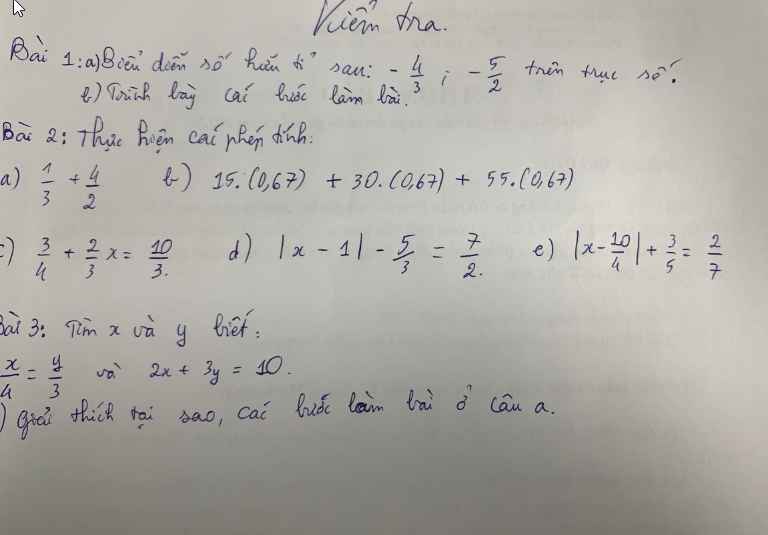 Kiểm tra.
Bài 1: a) Biểu diễn số hữu tỉ sau: - 4/3 ; - 5/2 trên trục số.
b) Trình bày các bước làm bài.
Bài 2: Thực hiện các phép tính:
a) 1/3 + 4/2 b) 15.(0,67) + 30.(0,67) + 55.(0,67)
c) 3/4 + 2/3 x = 10/3. d) |x - 1| - 5/3 = 7/2. e) |x - 10/4| + 3/5 = 2/7
Bài 3: Tìm x và y biết:
x/4 = y/3 và 2x + 3y = 10.
) giải thích tại sao, các bước làm bài ở câu a.